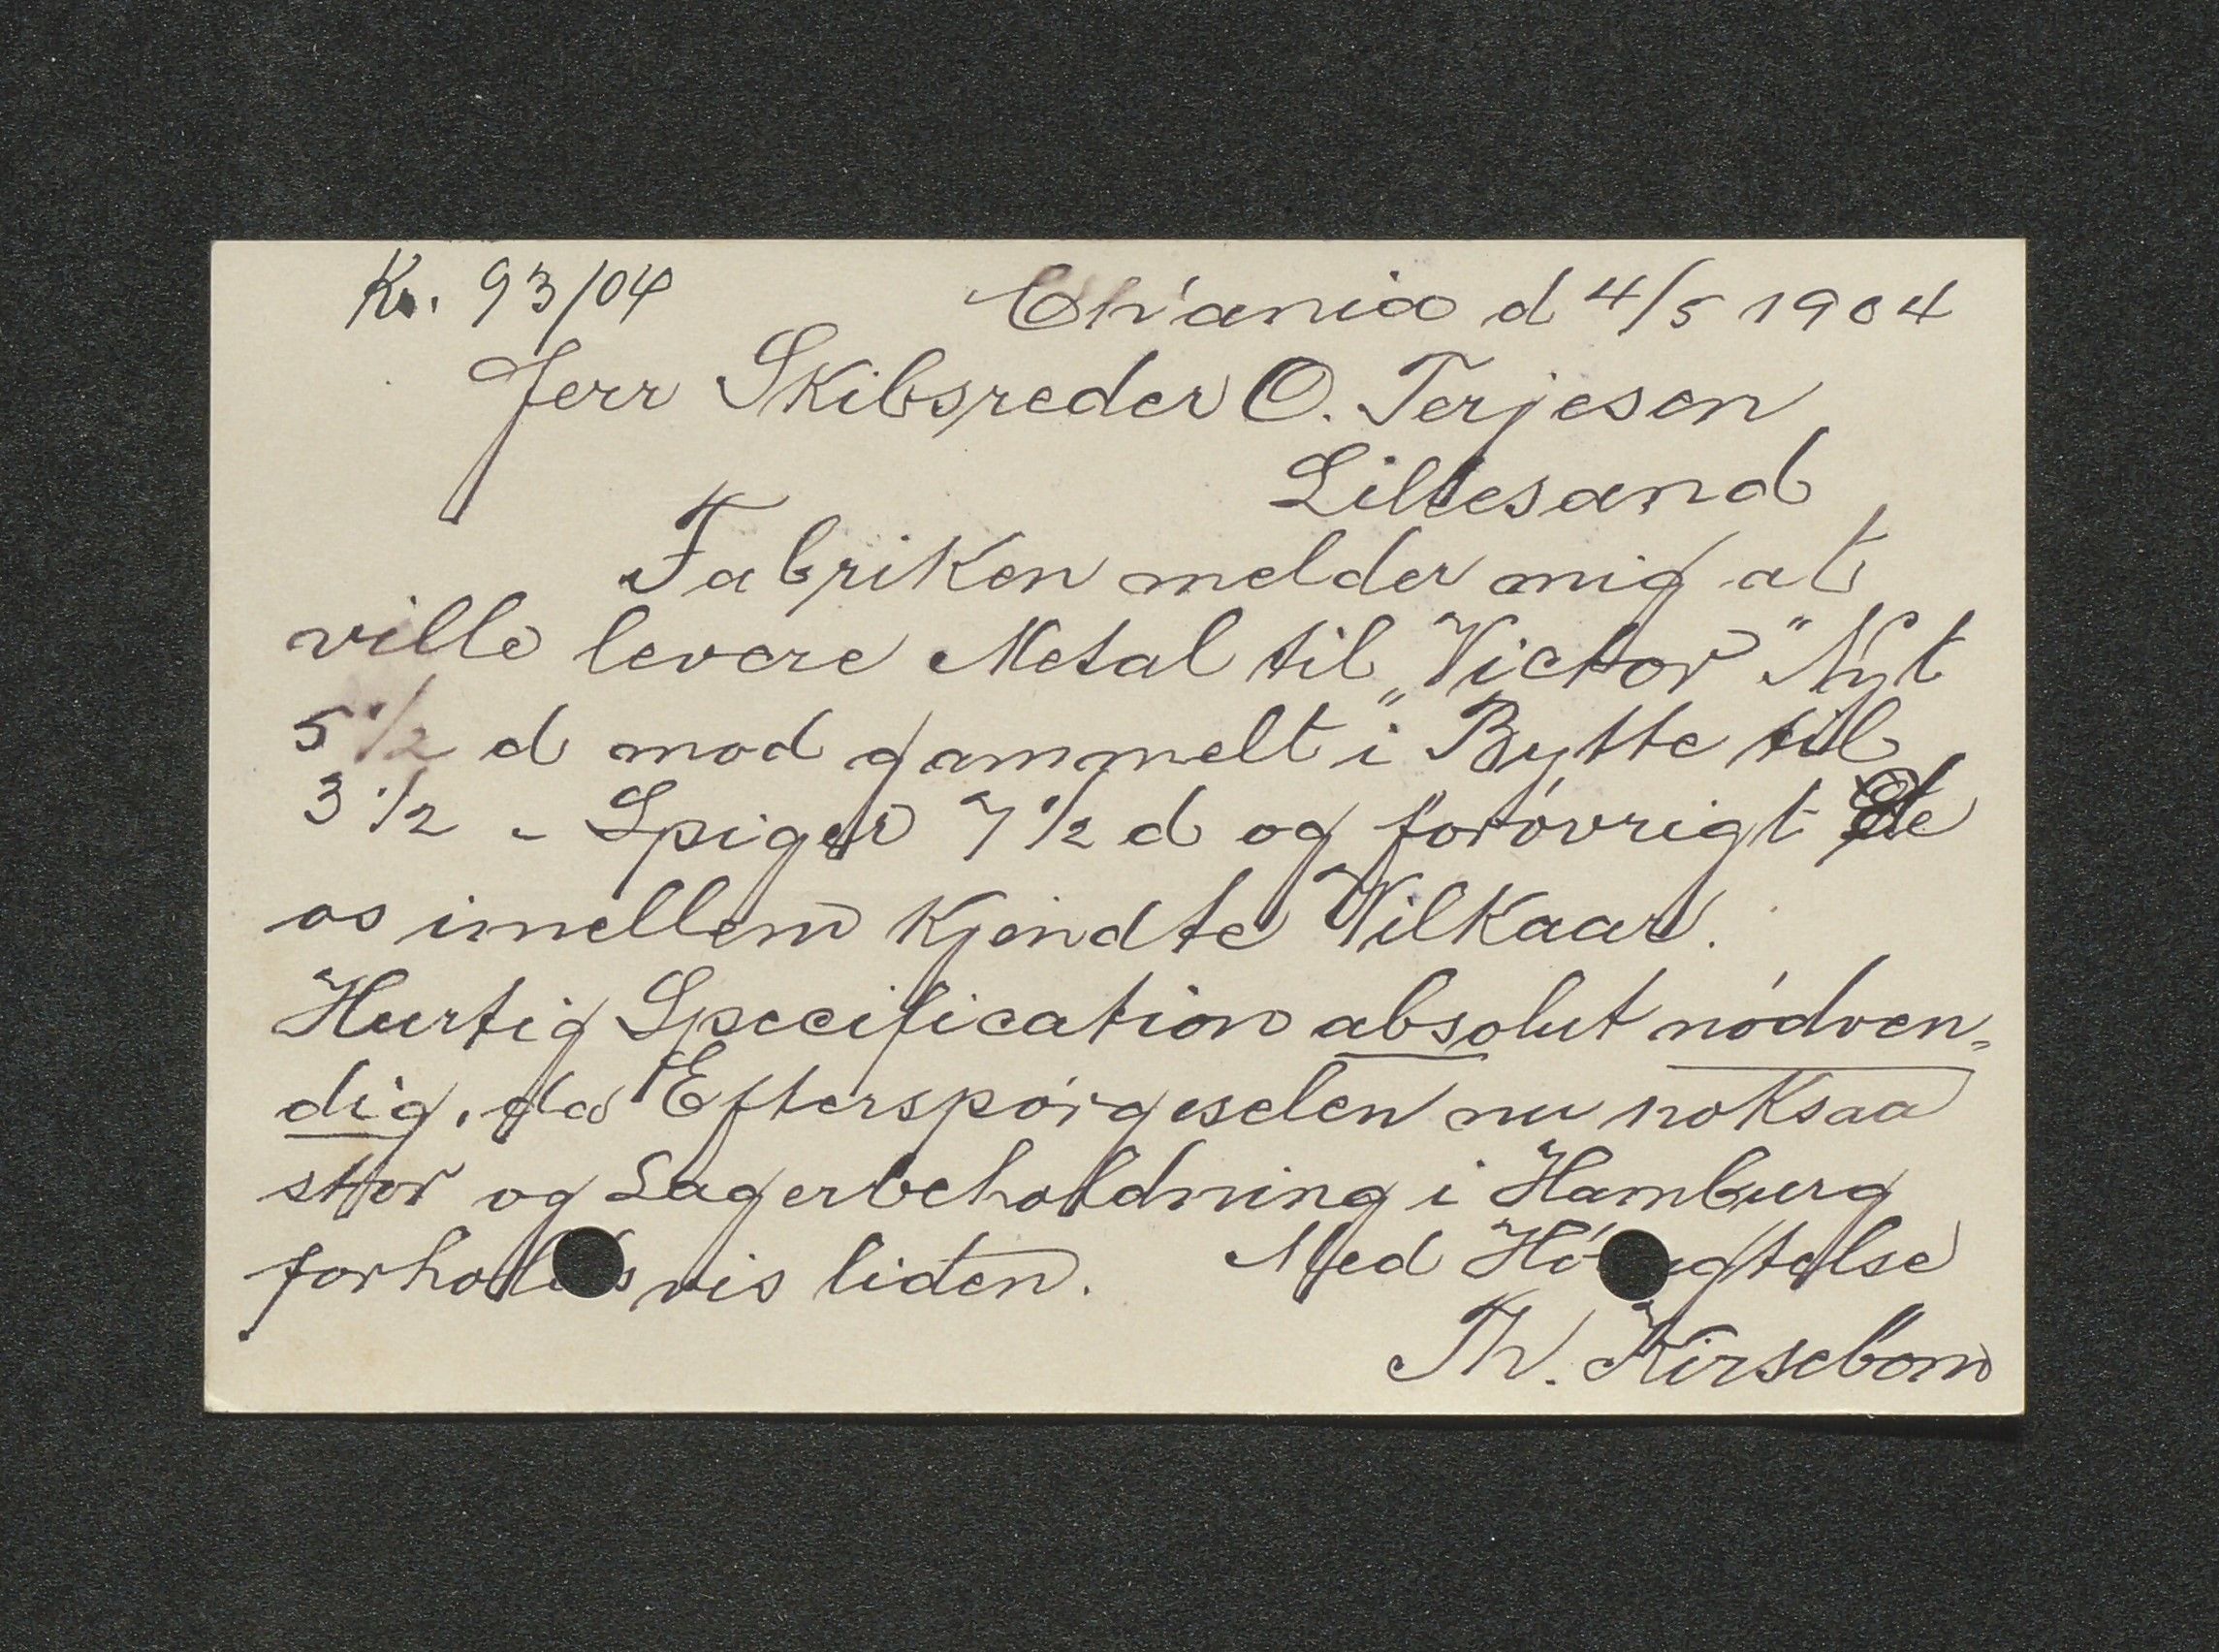 Kr. 93/04 Ch'ania d 4/5 1904
Herr Skibsreder O. Terjesen
Lillesand
Fabriken melder mig at
ville levere Metal til „Victor" Nyt
5 1/2 d mod gammelt i Bytte til
3 1/2 - Spiger 7 1/2 d og forøvrigt de
os imellem kjendte Vilkaar.
Hurtig Specification absolut nødven=
dig, da Efterspørgeselen nu noksaa
stor og Lagerbeholdning i Hamburg
forholdsvis liden. Med Høiagtelse
Th. Kirsebom